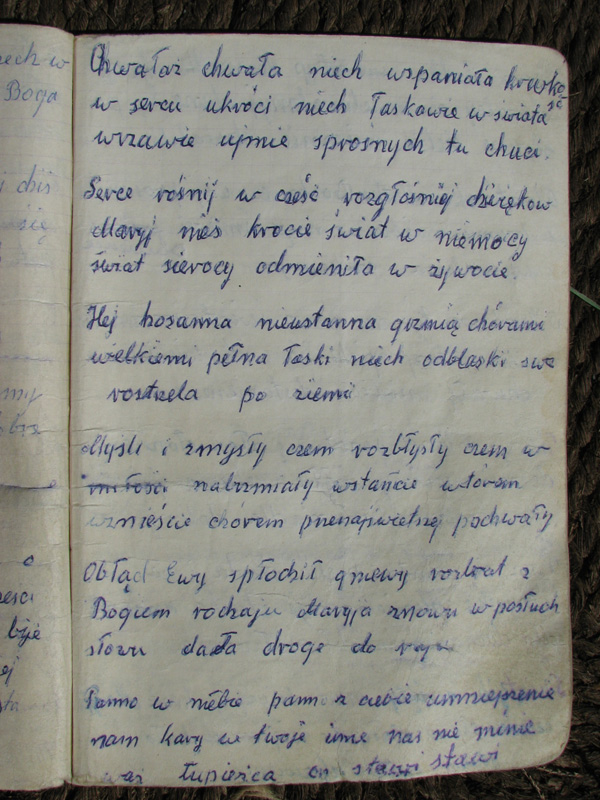 zech w
Boga
dziś
się
Chwałaż chwała niech wspaniała krusko
w sercu ukróci niech łaskawie w świata
wrzawie ujmie sprosnych tu chuci.
Serce rośnij w cześć rozgłośniej dzięków
Maryj nieś krocie świat w niemocy
świat sierocy odmieniła w żywocie.
Hej hosanna nieustanna grzmią chórami
wielkiemi pełna łaski niech odblaski swe
rostrzela po ziemi
Myśli i zmysły czem rozbłysły czem w
miłości nabrzmiały wstańcie wtórem
wznieście chórem przenajświetszej pochwały
Obłąd Ewy spłodził gniewy rozbrat z
Bogiem rodzaju Maryja znowu w posłuch
słowu dała droge do raju
Panno w niebie pann z ciebie umniejszenie
nam kary w twoje imie nas nie minie
łupieżca on stawi stawi